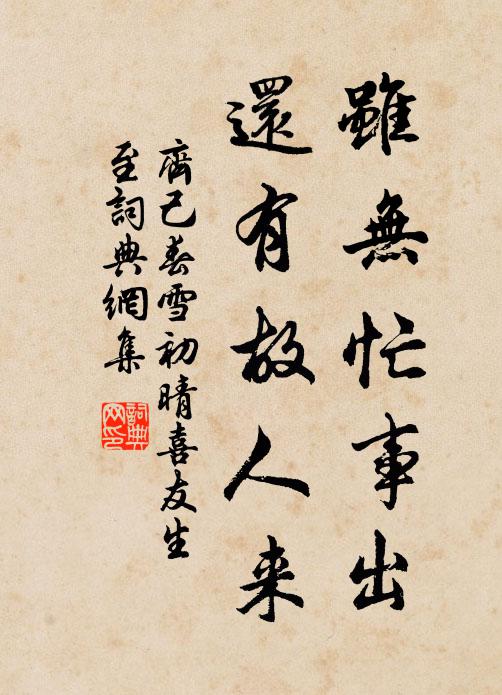 雖無忙事出
還有故人来
齊己春雪初晴喜友生
至詞典網集
詞典
网印